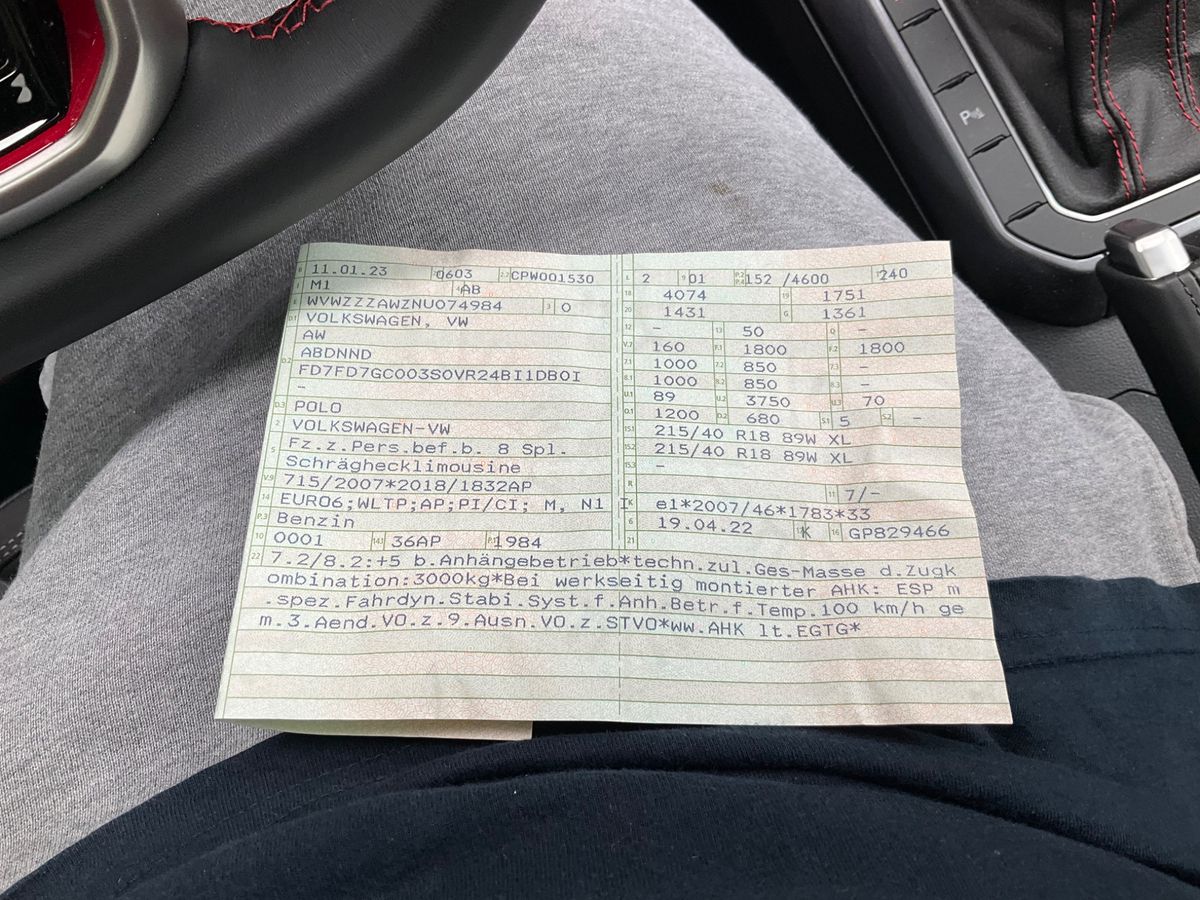 B 11.01.23 2.1 0603 2.2 CPW001530
J M1 4 AB
E WVWZZZAWZNU074984 3 0
D.1 VOLKSWAGEN, VW
AW
D.2 ABDNND
FD7FD7GC003S0VR24BI1DB0I
-
D.3 POLO
2 VOLKSWAGEN-VW
5 Fz.z.Pers.bef.b. 8 Spl.
Schräghecklimousine
V.9 715/2007*2018/1832AP
14 EURO6;WLTP;AP;PI/CI; M, N1 I
P.3 Benzin
10 0001 14.1 36AP P.1 1984
L 2 9 01 P.2 P.4 152 /4600 T 240
18 4074 19 1751
20 1431 G 1361
12 - 13 50 Q -
V.7 160 F.1 1800 F.2 1800
7.1 1000 7.2 850 7.3 -
8.1 1000 8.2 850 8.3 -
U.1 89 U.2 3750 U.3 70
O.1 1200 O.2 680 S.1 5 S.2 -
15.1 215/40 R18 89W XL
15.2 215/40 R18 89W XL
15.3 -
R 11 7/-
K e1*2007/46*1783*33
6 19.04.22 17 K 16 GP829466
21
22 7.2/8.2:+5 b.Anhängebetrieb*techn.zul.Ges-Masse d.Zugk
ombination:3000kg*Bei werkseitig montierter AHK: ESP m
.spez.Fahrdyn.Stabi.Syst.f.Anh.Betr.f.Temp.100 km/h ge
m.3.Aend.VO.z.9.Ausn.VO.z.STVO*ww.AHK lt.EGTG*
P